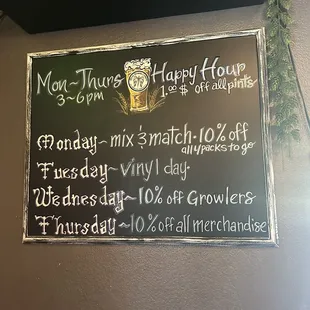 Mon~Thurs Happy Hour
3~6pm 1.00 $ off all pints
Monday~ mix & match · 10% off
all 4 packs to go
Tuesday~ vinyl day
Wednesday~ 10% off Growlers
Thursday~ 10% off all merchandise